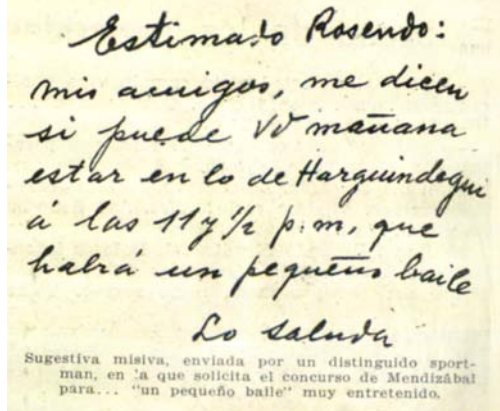 Estimado Rosendo:
mis amigos, me dicen
si puede Vd mañana
estar en lo de Harguindegui
á las 11 y 1/2 p.m, que
habrá un pequeño baile
Lo saluda
Sugestiva misiva, enviada por un distinguido sport-
man, en la que solicita el concurso de Mendizábal
para... "un pequeño baile" muy entretenido.